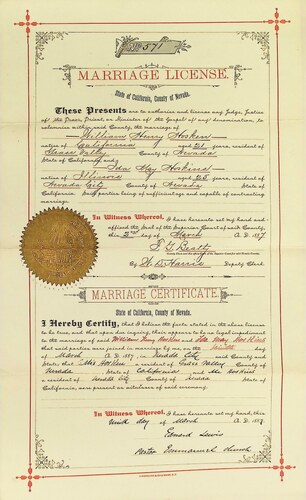 571
MARRIAGE LICENSE.
State of California, County of Nevada.
These Presents are to authorize and license any Judge, Justice
of the Peace, Priest, or Minister of the Gospel of any denomination, to
solemnize within said County, the marriage of
William Henry Hosken
native of California aged 21 years, resident of
County of Nevada
State of California, and
Ida May Hoskins
native of Illinois aged years, resident of
Nevada City County of Nevada
State of California. Said parties being of sufficient age and capable of contracting
marriage.
In Witness Whereof, I have hereunto set my hand and
affixed the Seal of the Superior Court of said County,
this day of March A. D. 1887
Deputy Clerk.
MARRIAGE CERTIFICATE.
State of California, County of Nevada.
I Hereby Certify, that I believe the facts stated in the above license
to be true, and that upon due inquiry, there appears to be no legal impediment
to the marriage of said William Henry Hosken and Ida May Hoskins
that said parties were joined in marriage by me, on the
of March A. D. 1887, in Nevada City said County and
State; that Hosken a resident of Valley
County of Nevada State of California and
a resident of Nevada City County of Nevada State of
California, are present as witnesses of said ceremony.
In Witness Whereof, I have hereunto set my hand, this
Ninth day of March A. D. 1887.
Edward Lewis
Church